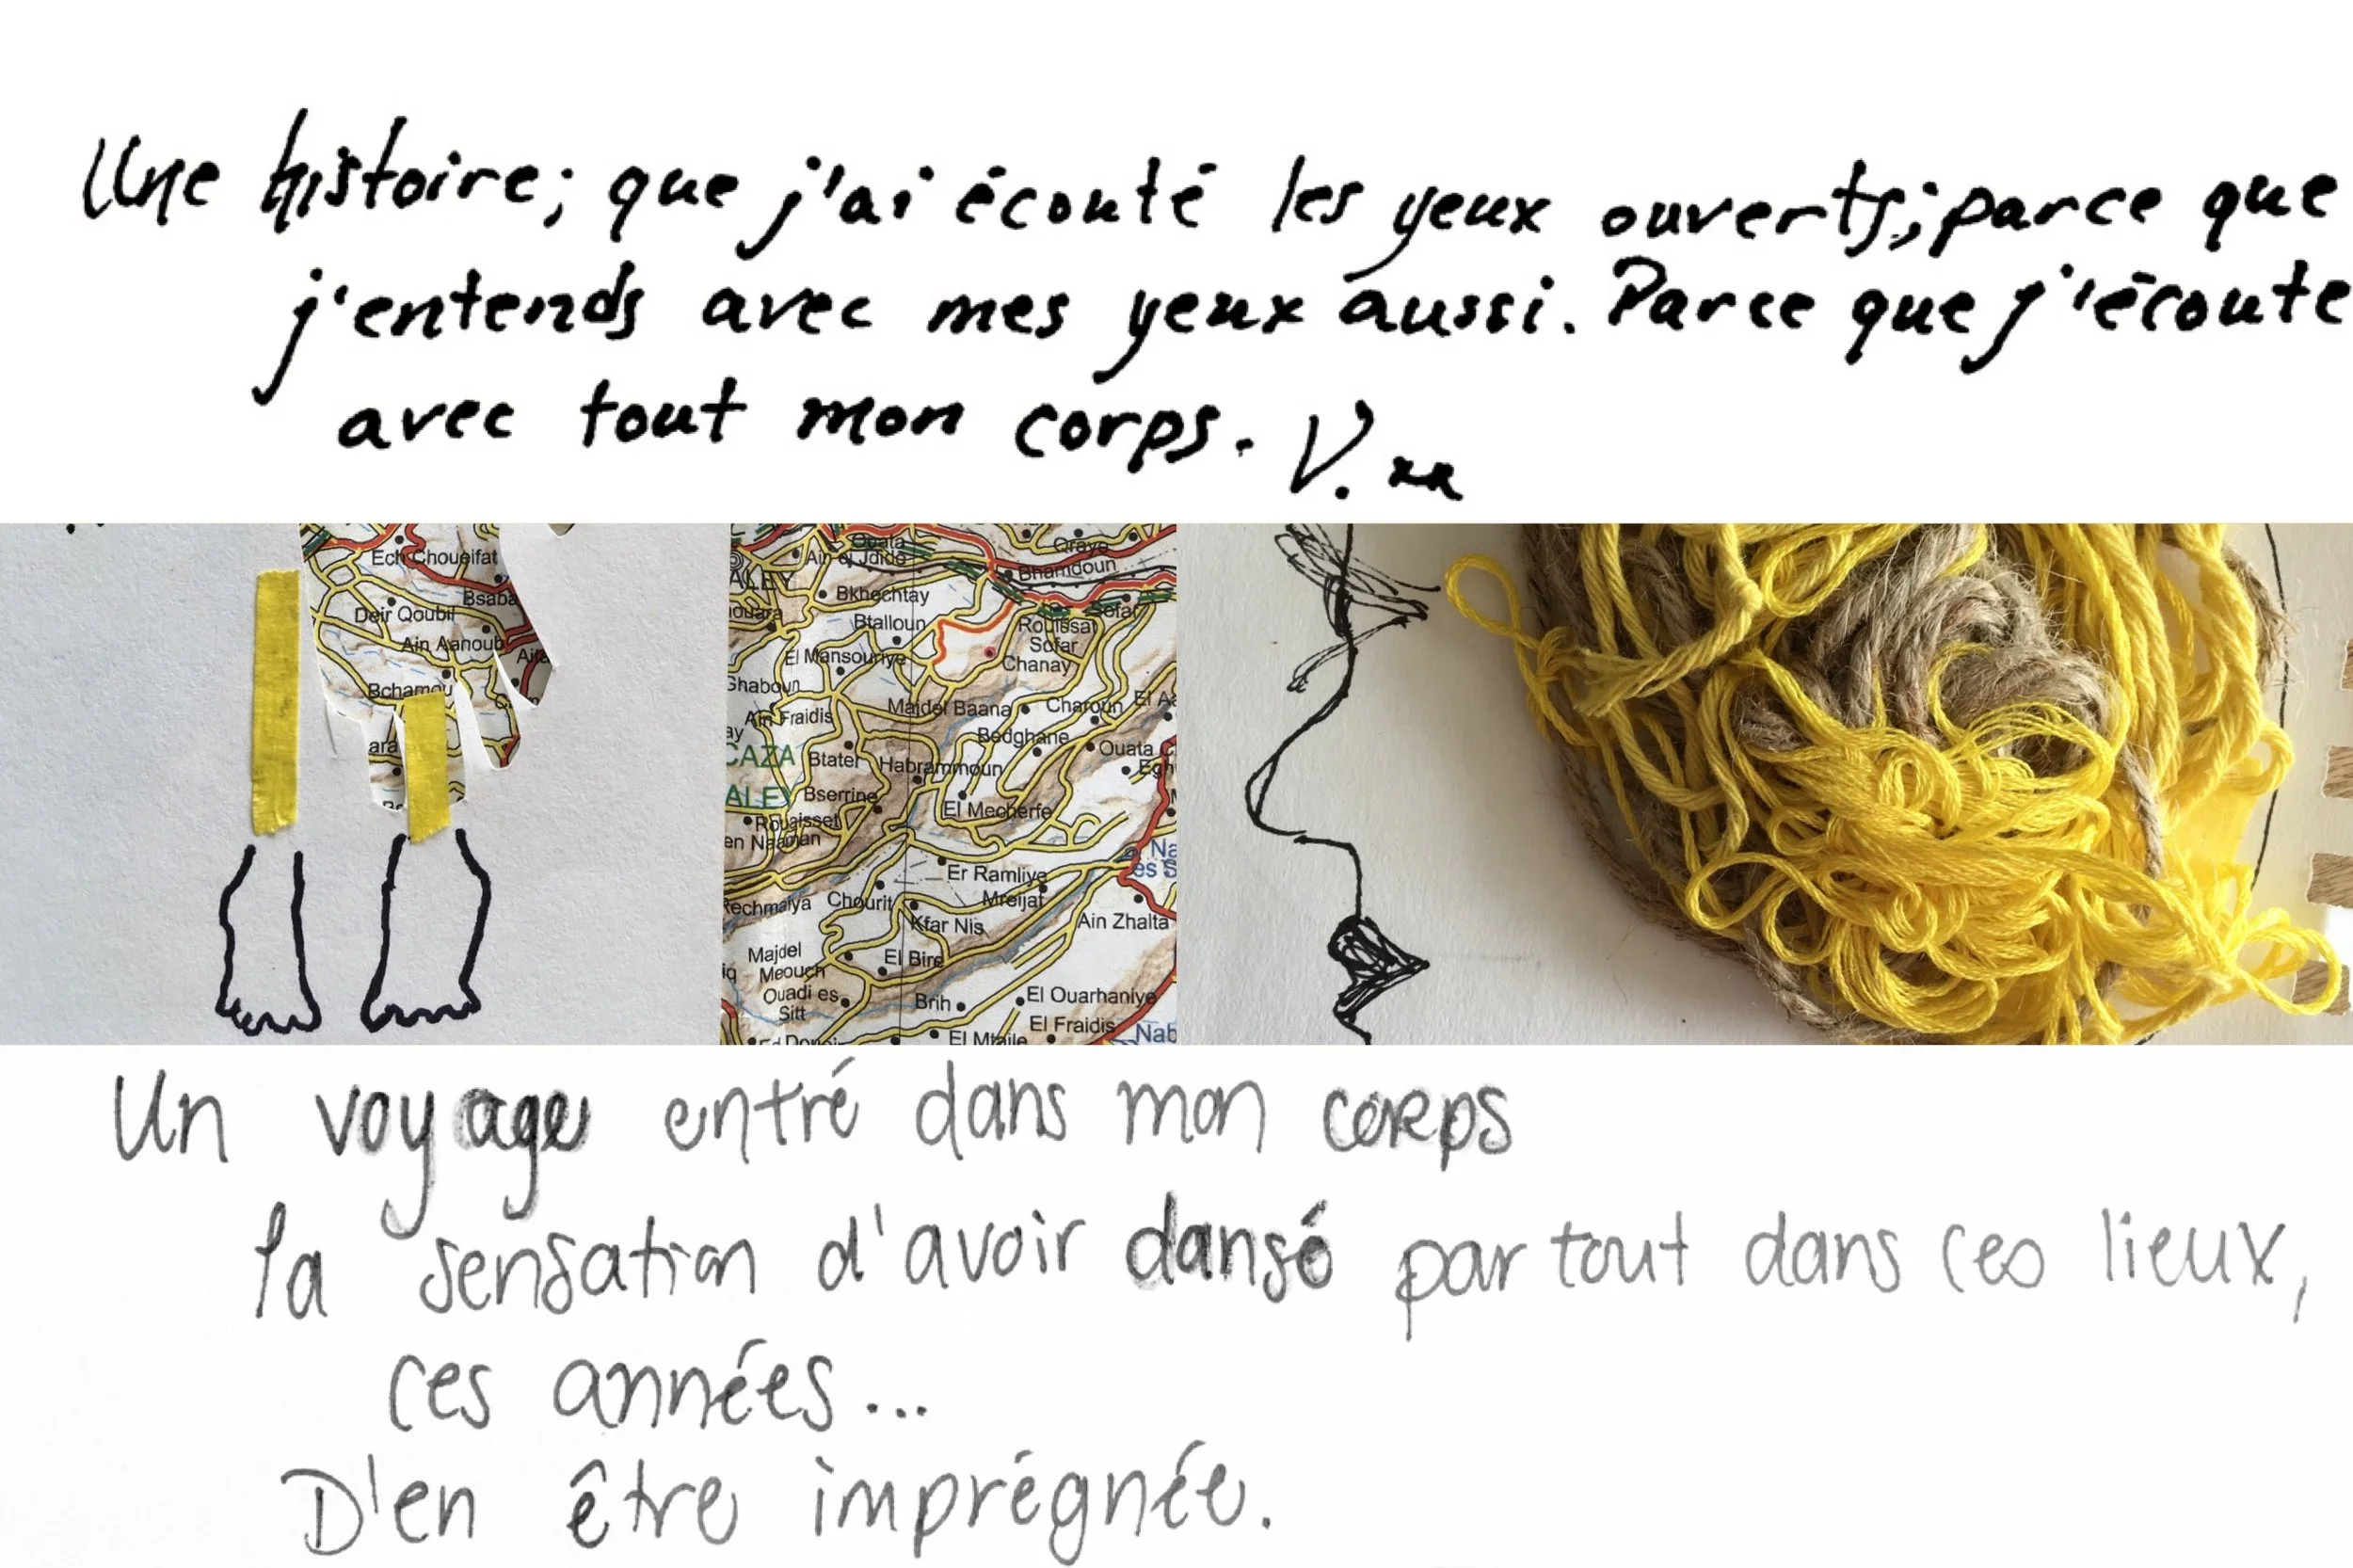 Une histoire; que j'ai écouté les yeux ouverts; parce que
j'entends avec mes yeux aussi. Parce que j'écoute
avec tout mon corps. V.
Ech Choueifat
Deir Qoubil
Bsaba
Ain Aanoub
Bchamou
ara
Ouata
Ain ej Jdide
Qraye
Bhamdoun
ALEY
Bkhechtay
ouara
Btalloun
Sofar
Rouissat
Sofar
El Mansouriye
Chanay
Ghaboun
Majdel Baana
Charoun
Ain Fraidis
Bedghane
Ouata
CAZA
Btater
Habrammoun
ALEY
Bserrine
El Mecherfe
Rouaisset
en Naaman
Er Ramliye
Rechmaiya
Chourit
Mreijat
Kfar Nis
Ain Zhalta
Majdel
Meouch
El Bire
Ouadi es
Sitt
Brih
El Ouarhaniye
El Fraidis
El Mtaile
Nab
Un voyage entré dans mon corps
la sensation d'avoir dansé partout dans ces lieux,
ces années...
D'en être imprégnée.